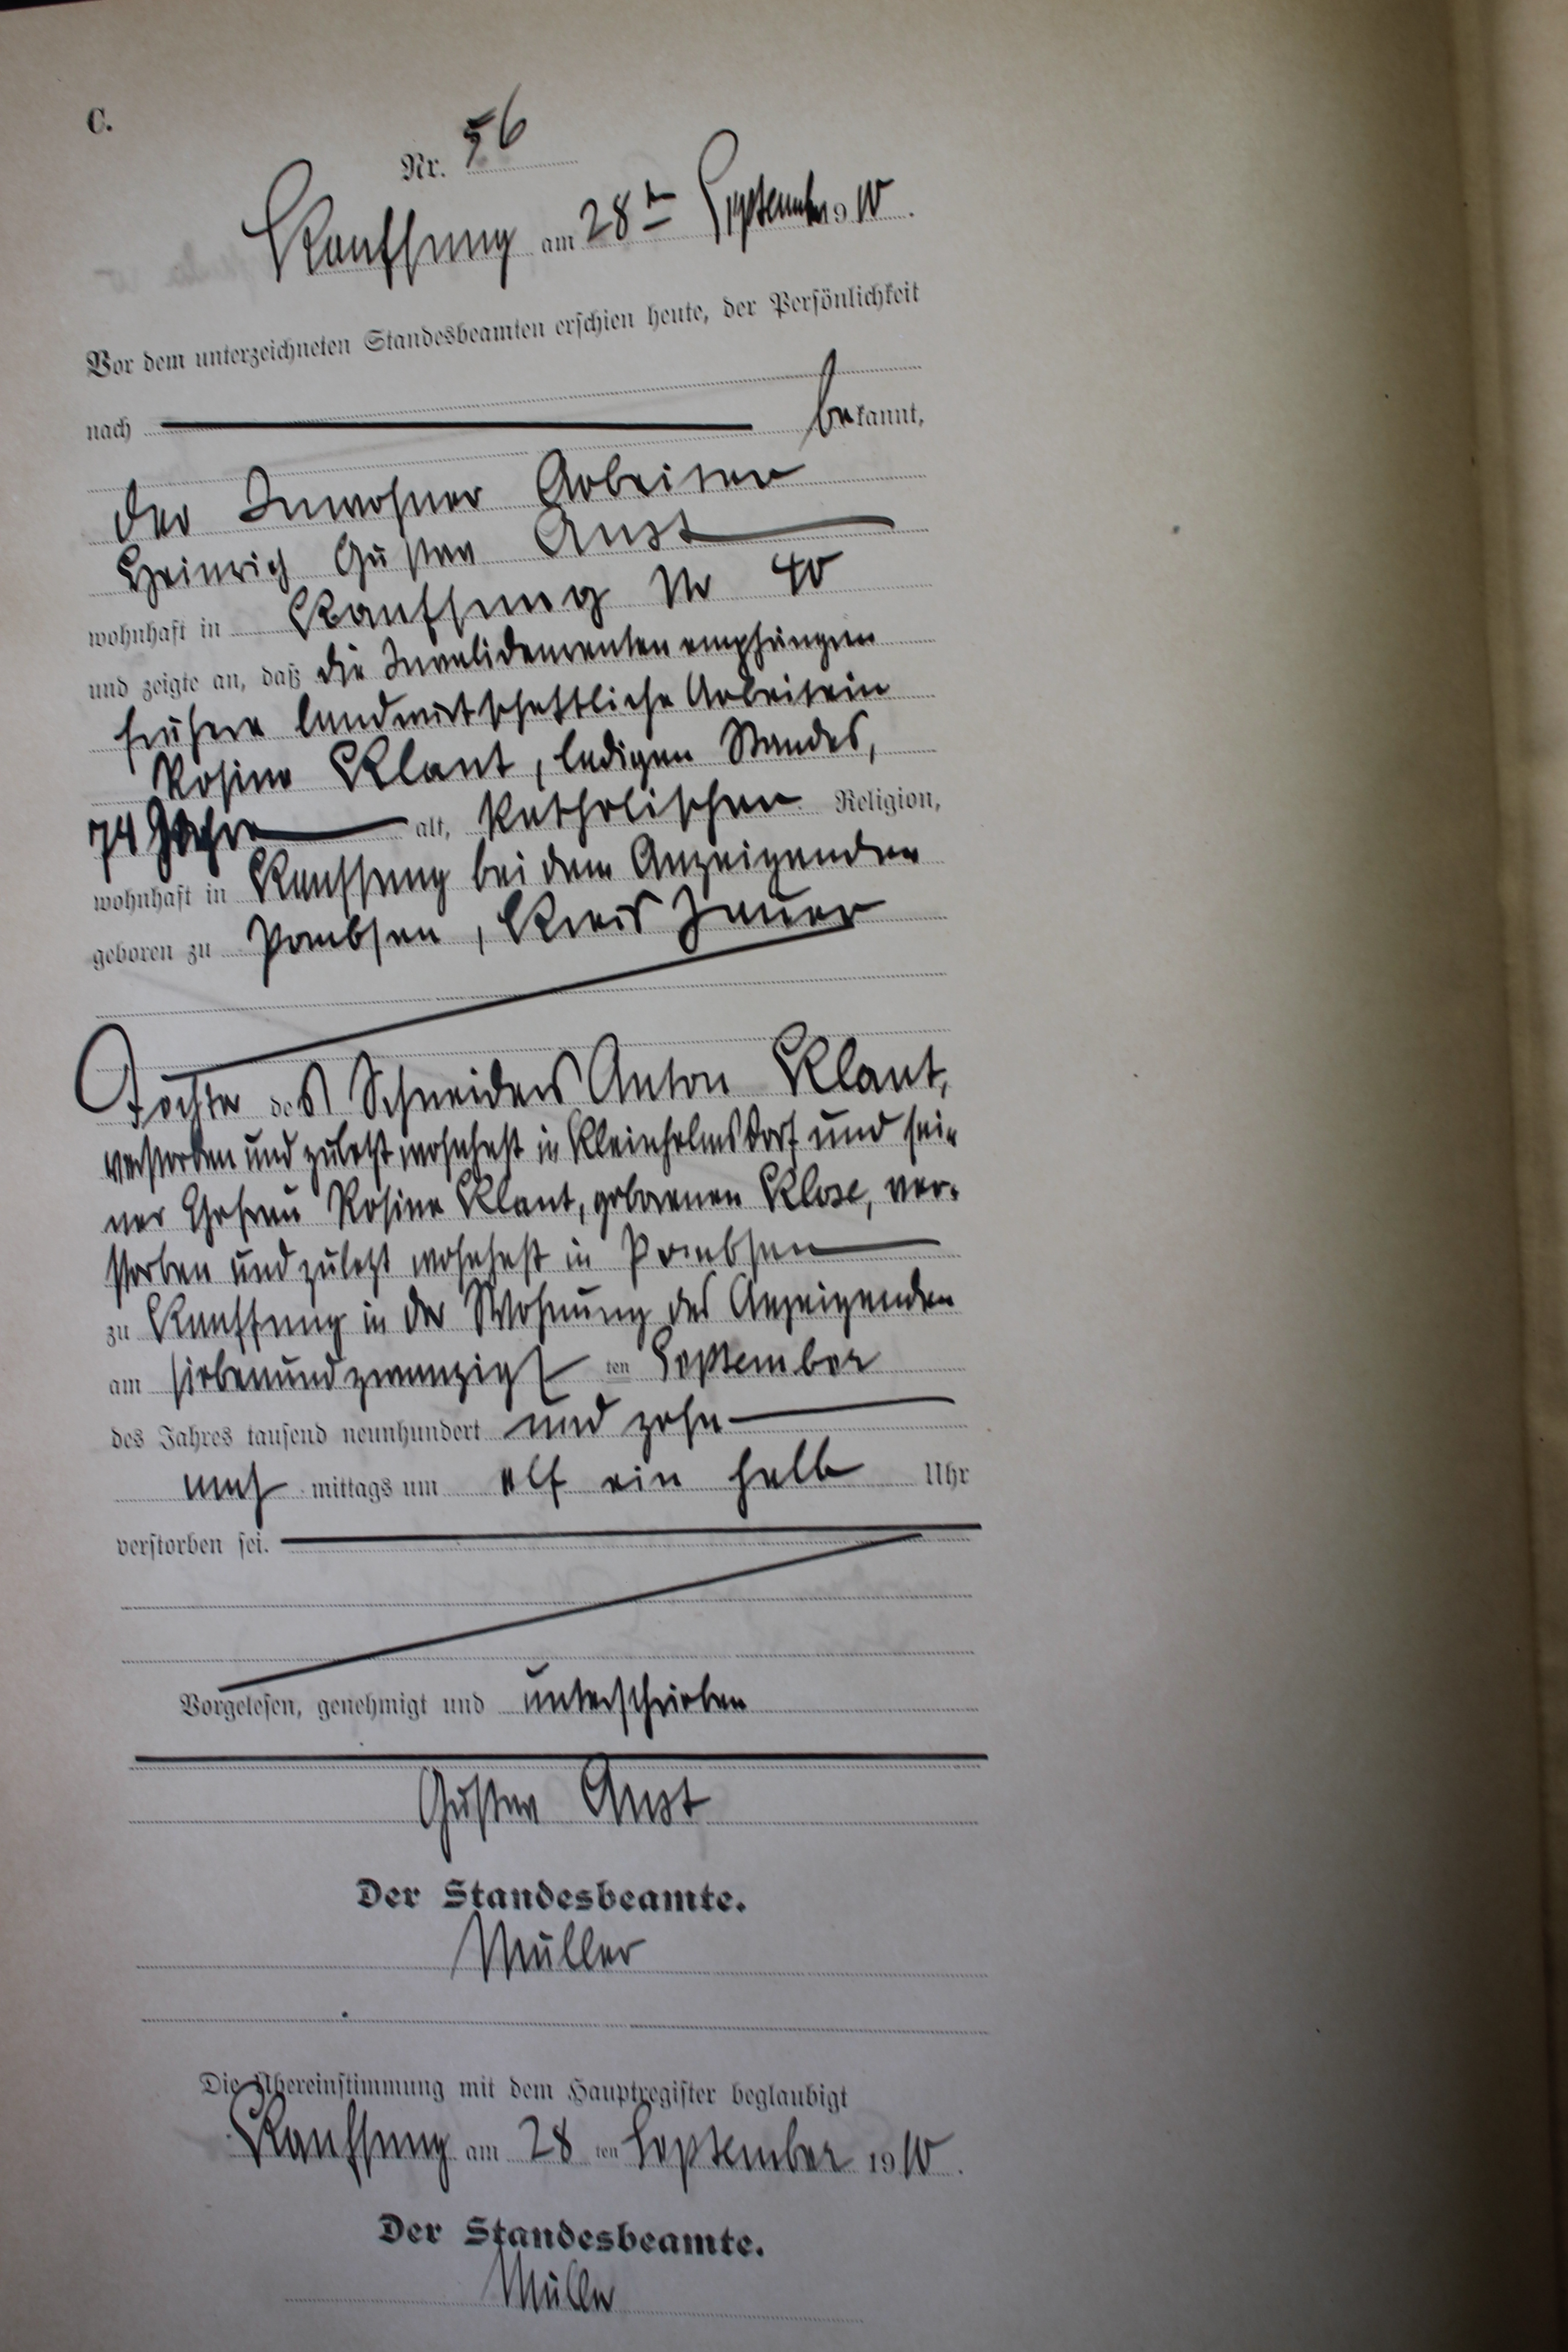 C.
Nr. 56
Kauffung am 28ten September 1910.
Vor dem unterzeichneten Standesbeamten erschien heute, der Persönlichkeit
nach bekannt,
der Inwohner Arbeiter
Heinrich Gustav Aust
wohnhaft in Kauffung Nr 40
und zeigte an, daß die Invalidenrentenempfängerin
frühere landwirtschaftliche Arbeiterin
Rosina Klant, ledigen Standes,
74 Jahre alt, katholischer Religion,
wohnhaft in Kauffung bei dem Anzeigenden
geboren zu Pombsen, Kreis Jauer
Tochter des Schneiders Anton Klant,
verstorben und zuletzt wohnhaft in Kleinhelmsdorf und sei-
ner Ehefrau Rosina Klant, geborenen Klose, ver-
storben und zuletzt wohnhaft in Pombsen
zu Kauffung in der Wohnung des Anzeigenden
am siebenundzwanzigsten September
des Jahres tausend neunhundert und zehn
nachmittags um elf ein halb Uhr
verstorben sei.
Vorgelesen, genehmigt und unterschrieben
Gustav Aust
Der Standesbeamte.
Müller
Die Übereinstimmung mit dem Hauptregister beglaubigt
Kauffung am 28ten September 1910.
Der Standesbeamte.
Müller